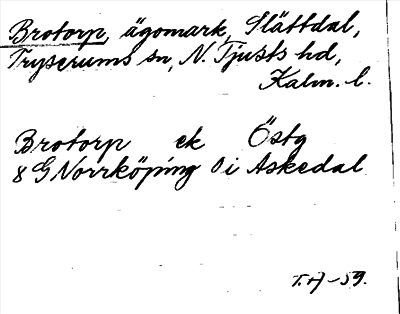 Brotorp, ägomark, Slättdal,
Tryserums sn, N. Tjusts hd,
Kalm. l.
Brotorp ek Östg
8 G Norrköping Ö i Askedal
T.H -59.